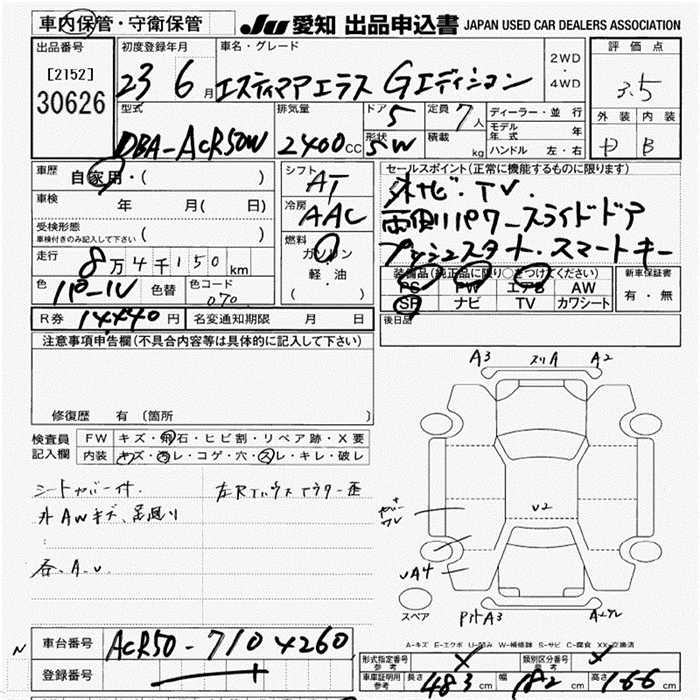 車内保管・守衛保管
JU 愛知 出品申込書 JAPAN USED CAR DEALERS ASSOCIATION
出品番号 初度登録年月 車名・グレード 2WD・4WD 評価点
[2152] 30626 23 6月 エスティマアエラス Gエディション 3.5
型式 排気量 ドア 5 定員 7人 ディーラー・並行 外装 内装
DBA-ACR50W 2400CC 形状 SW 積載 kg モデル年式 年 D B
ハンドル 左・右
車歴 自家用・( ) シフト AT セールスポイント(正常に機能するものに限ります)
車検 年 月( 日) 冷房 AAC ナビ・TV・
受検形態 車検付きのみ記入して下さい ( ) 両側パワースライドドア
走行 8万4千150km 燃料 ガソリン・軽・油 ( ) プッシュスタート・スマートキー
装備品(純正品に限り○をつけてください) 新車保証書
色 パール 色替 色コード 070 PS PW エアB AW 有・無
SR ナビ TV カワシート
R券 14,440円 名変通知期限 月 日 後日品
注意事項申告欄(不具合内容等は具体的に記入して下さい)
修復歴 有 〔箇所 〕
検査員記入欄 FW キズ・飛石・ヒビ割・リペア跡・X要
内装 キズ・汚レ・コゲ・穴・スレ・キレ・破レ
シートカバー付.
外AWキズ、
各.A.U
A3 スリA A2
U2
UA4
スペア A3
A-キズ E-エクボ U-凹み W-補修跡 S-サビ C-腐食 XX-交換済
N 車台番号 ACR50-7104260 形式指定番号 参考 類別区分番号 参考
登録番号 車庫証明用 参考 長さ 483cm 幅 182cm 高さ 166cm